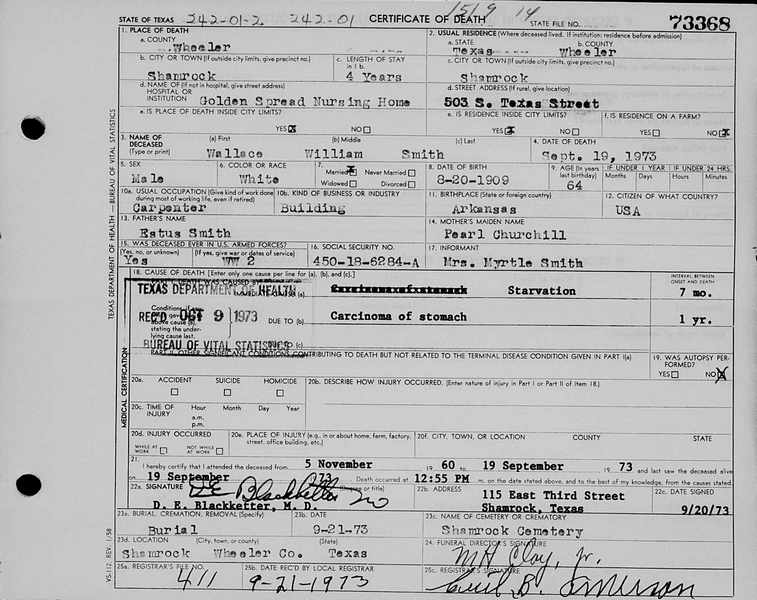 STATE OF TEXAS 242-01-2 242-01 CERTIFICATE OF DEATH 1519 14 STATE FILE NO. 73368
1. PLACE OF DEATH
a. COUNTY
Wheeler
2. USUAL RESIDENCE (Where deceased lived. If institution: residence before admission)
a. STATE b. COUNTY
Texas Wheeler
b. CITY OR TOWN (If outside city limits, give precinct no.) c. LENGTH OF STAY in 1 b.
Shamrock 4 Years
c. CITY OR TOWN (If outside city limits, give precinct no.)
Shamrock
d. NAME OF (If not in hospital, give street address) HOSPITAL OR INSTITUTION
Golden Spread Nursing Home
d. STREET ADDRESS (If rural, give location)
503 S. Texas Street
e. IS PLACE OF DEATH INSIDE CITY LIMITS?
YES NO
e. IS RESIDENCE INSIDE CITY LIMITS? f. IS RESIDENCE ON A FARM?
YES NO YES NO
3. NAME OF DECEASED (Type or print) (a) First (b) Middle (c) Last 4. DATE OF DEATH
Wallace William Smith Sept. 19, 1973
5. SEX 6. COLOR OR RACE 7. Married Never Married Widowed Divorced 8. DATE OF BIRTH 9. AGE (In years last birthday) IF UNDER 1 YEAR IF UNDER 24 HRS.
Months Days Hours Minutes
Male White 8-20-1909 64
10a. USUAL OCCUPATION (Give kind of work done during most of working life, even if retired) 10b. KIND OF BUSINESS OR INDUSTRY 11. BIRTHPLACE (State or foreign country) 12. CITIZEN OF WHAT COUNTRY?
Carpenter Building Arkansas USA
13. FATHER'S NAME 14. MOTHER'S MAIDEN NAME
Estus Smith Pearl Churchill
15. WAS DECEASED EVER IN U.S. ARMED FORCES? (Yes, no, or unknown) (If yes, give war or dates of service) 16. SOCIAL SECURITY NO. 17. INFORMANT
Yes WW 2 450-18-6284-A Mrs. Myrtle Smith
18. CAUSE OF DEATH [Enter only one cause per line for (a), (b), and (c).] INTERVAL BETWEEN ONSET AND DEATH
TEXAS DEPARTMENT OF HEALTH (a) Starvation 7 mo.
REC'D OCT 9 1973 DUE TO (b) Carcinoma of stomach 1 yr.
BUREAU OF VITAL STATISTICS (c)
PART II. OTHER SIGNIFICANT CONDITIONS CONTRIBUTING TO DEATH BUT NOT RELATED TO THE TERMINAL DISEASE CONDITION GIVEN IN PART I(a) 19. WAS AUTOPSY PERFORMED?
YES NO
20a. ACCIDENT SUICIDE HOMICIDE 20b. DESCRIBE HOW INJURY OCCURRED. (Enter nature of injury in Part I or Part II of item 18.)
20c. TIME OF INJURY Hour Month Day Year
a.m.
p.m.
20d. INJURY OCCURRED WHILE AT WORK NOT WHILE AT WORK 20e. PLACE OF INJURY (e.g., in or about home, farm, factory, street, office building, etc.) 20f. CITY, TOWN, OR LOCATION COUNTY STATE
21. I hereby certify that I attended the deceased from 5 November 19 60 to 19 September 19 73 and last saw the deceased alive
on 19 September 1973 Death occurred at 12:55 PM m. on the date stated above, and to the best of my knowledge, from the causes stated.
22a. SIGNATURE DE Blackketter MD (Degree or title) 22b. ADDRESS 115 East Third Street 22c. DATE SIGNED
D. E. Blackketter, M. D. Shamrock, Texas 9/20/73
23a. BURIAL, CREMATION, REMOVAL (Specify) 23b. DATE 23c. NAME OF CEMETERY OR CREMATORY
Burial 9-21-73 Shamrock Cemetery
23d. LOCATION (City, town, or county) (State) 24. FUNERAL DIRECTOR'S SIGNATURE
Shamrock Wheeler Co. Texas M H Clay, Jr.
25a. REGISTRAR'S FILE NO. 25b. DATE REC'D BY LOCAL REGISTRAR 25c. REGISTRAR'S SIGNATURE
411 9-21-1973 Cecil B. Emerson
TEXAS DEPARTMENT OF HEALTH — BUREAU OF VITAL STATISTICS
MEDICAL CERTIFICATION
VS-112 REV. 1/58